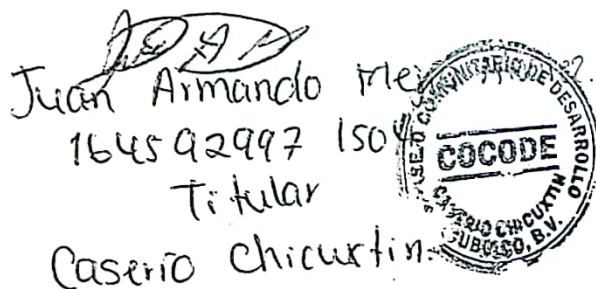 Juan Armando
164592997 150
Titular
Caserio Chicuxtin.
COMUNITARIO DE DESARROLLO
COCODE
CASERIO CHICUXTIN
CUBULCO, B.V.